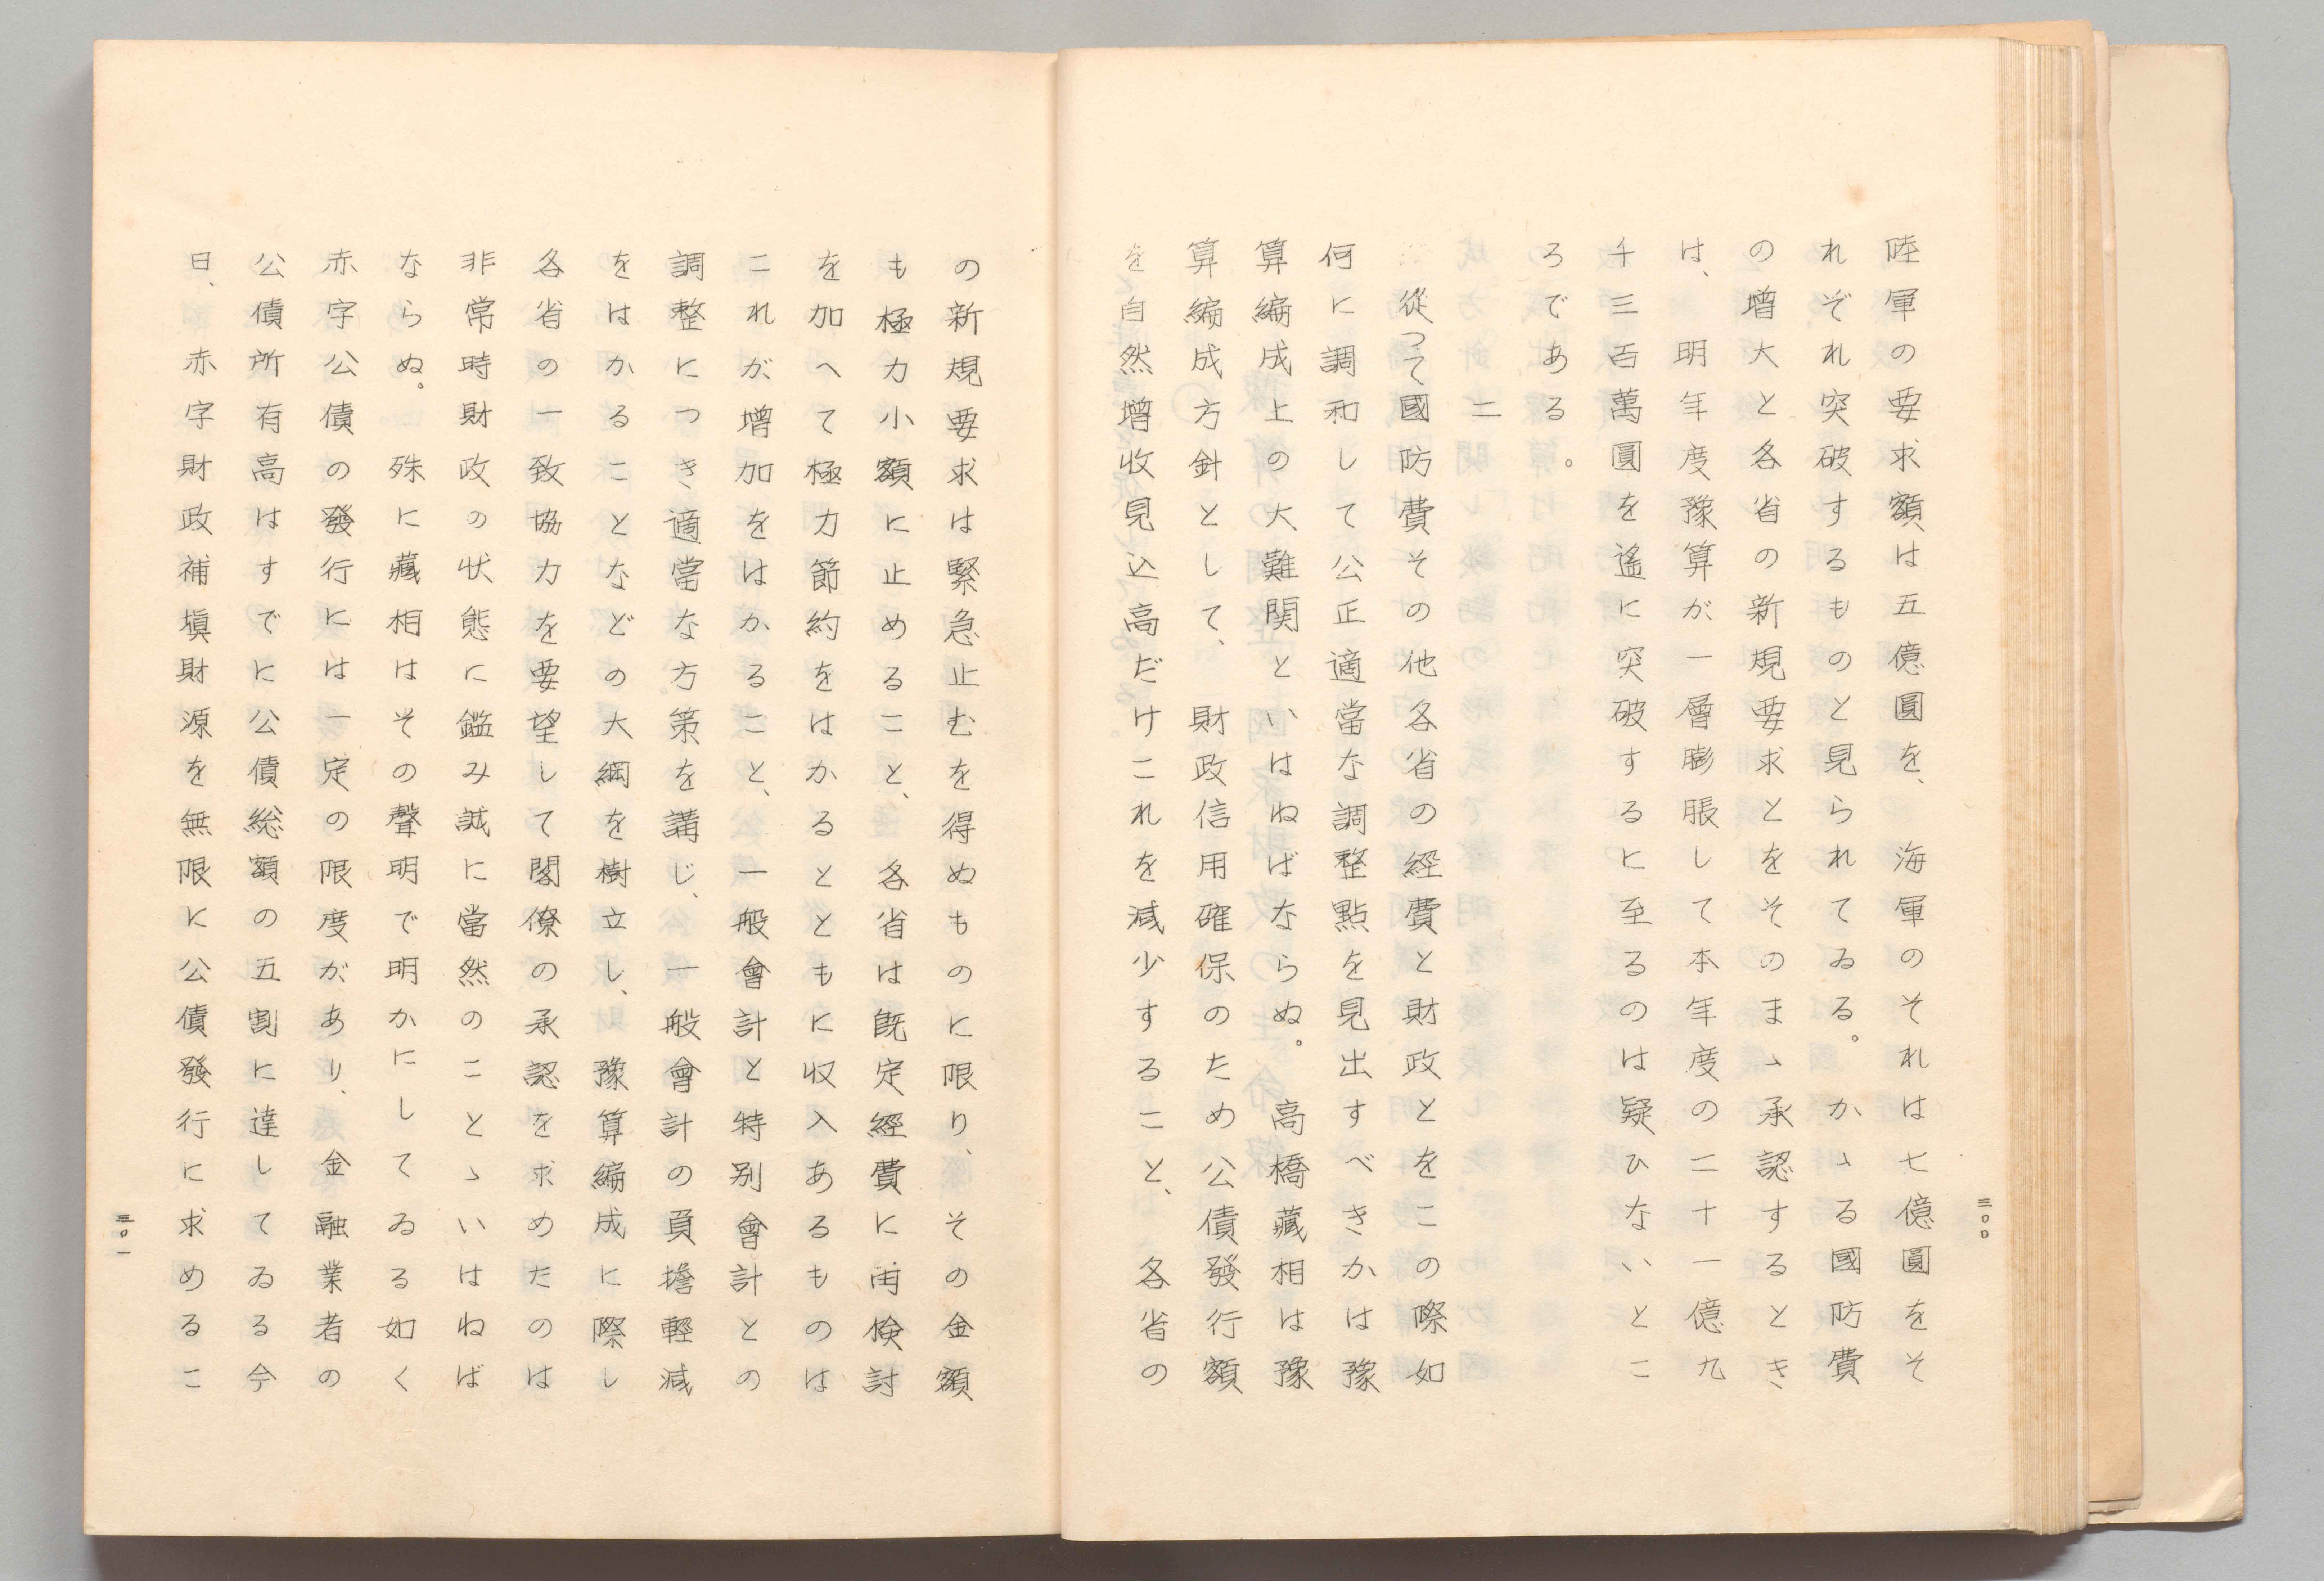 陸軍の要求額は五億圓を、海軍のそれは七億圓をそ
れぞれ突破するものと見られてゐる。かゝる國防費
の増大と各省の新規要求とをそのまゝ承認するとき
は、明年度豫算が一層膨脹して本年度の二十一億九
千三百萬圓を遙に突破するに至るのは疑ひないとこ
ろである。
二
從つて國防費その他各省の經費と財政とをこの際如
何に調和して公正適當な調整點を見出すべきかは豫
算編成上の大難関といはねばならぬ。高橋藏相は豫
算編成方針として、財政信用確保のため公債發行額
を自然増收見込高だけこれを減少すること、各省の
三〇〇
の新規要求は緊急止むを得ぬものに限り、その金額
も極力小額に止めること、各省は既定經費に再検討
を加へて極力節約をはかるとともに収入あるものは
これが増加をはかること、一般會計と特別會計との
調整につき適當な方策を講じ、一般會計の負擔輕減
をはかることなどの大綱を樹立し、豫算編成に際し
各省の一致協力を要望して閣僚の承認を求めたのは
非常時財政の状態に鑑み誠に當然のことゝいはねば
ならぬ。殊に藏相はその聲明で明かにしてゐる如く
赤字公債の發行には一定の限度があり、金融業者の
公債所有高はすでに公債総額の五割に達してゐる今
日、赤字財政補塡財源を無限に公債發行に求めるこ
三〇一